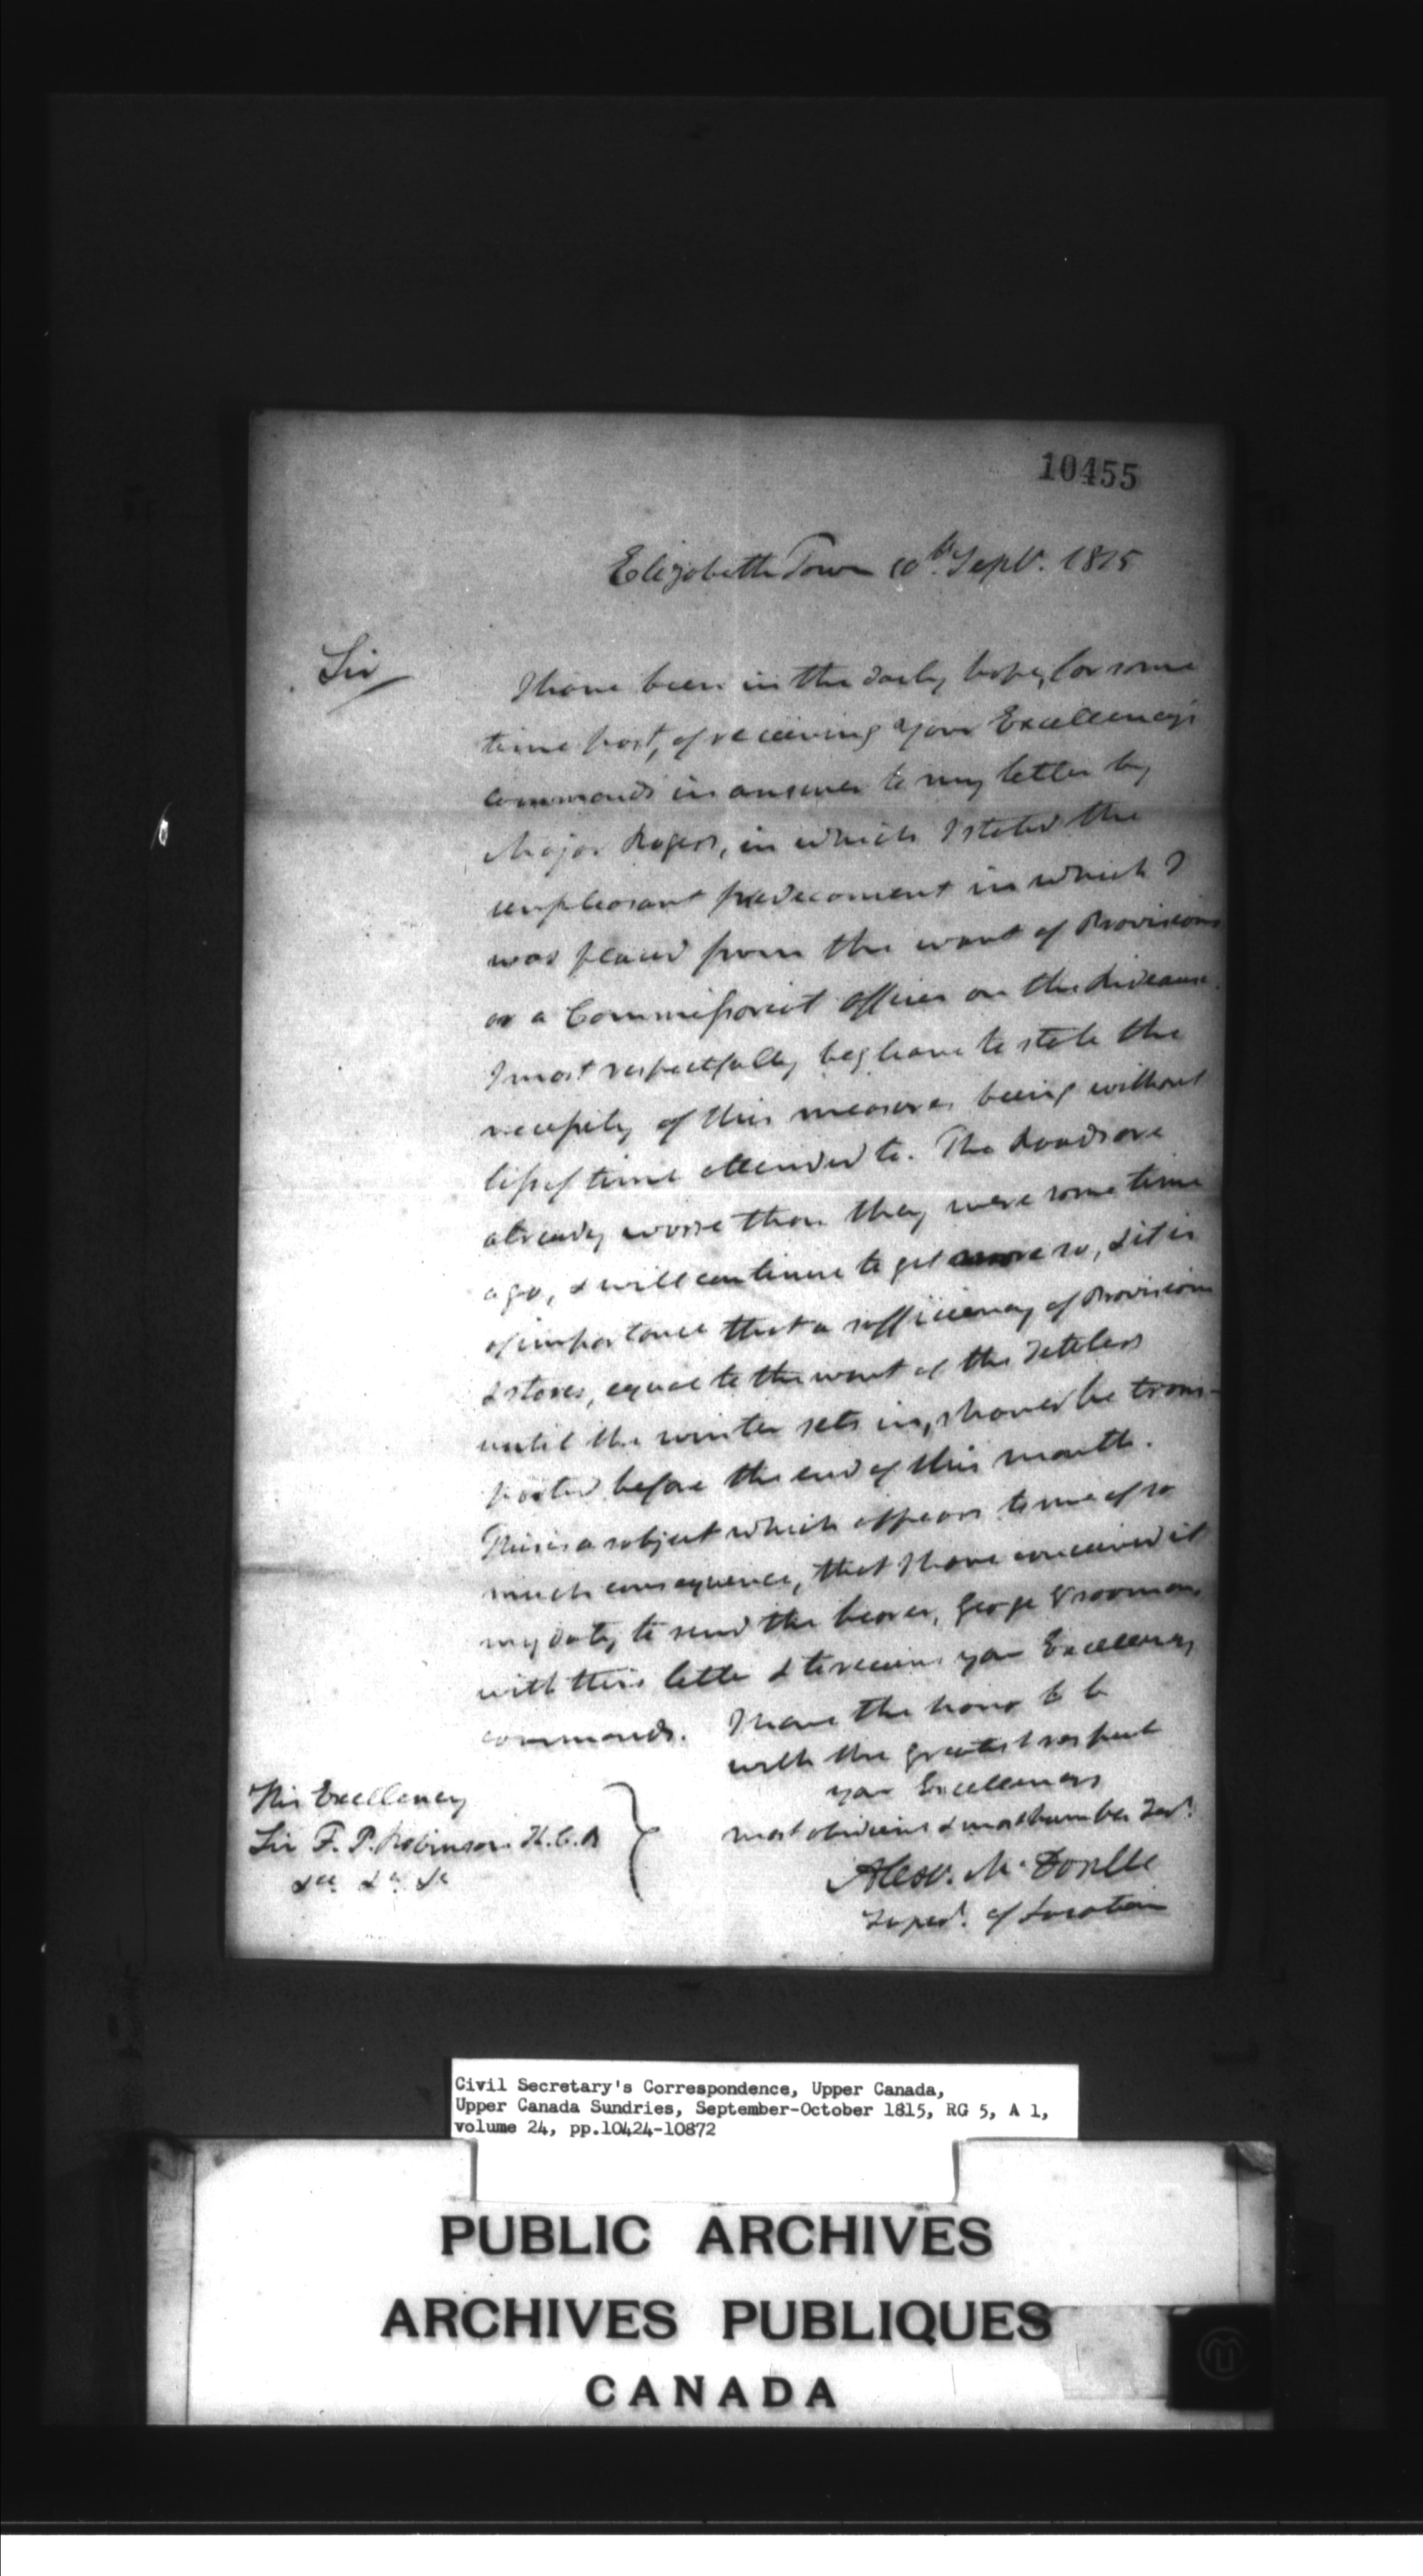 10455
Elizabeth Town 10th Sept. 1815
Sir
I have been in the daily hope, for some
time past, of receiving your Excellency's
commands in answer to my letter by
Major Rogers, in which I stated the
unpleasant predicament in which I
was placed from the want of Provisions
or a Commissariat officer on the Rideau
I most respectfully beg leave to state the
necessity of this measure being without
loss of time attended to. The Roads are
already worse than they were some time
ago, & will continue to get more so, & it is
of importance that a sufficiency of Provisions
& stores, equal to the want of the Settlers
until the winter sets in, should be trans-
ported before the end of this month.
This is a subject which appears to me of so
much consequence, that I have conceived it
my duty to send the bearer, George Vrooman
with this letter & to receive your Excellency
commands. I have the honor to be
with the greatest respect
your Excellencys
most obedient & most humble Servt.
Alexr. McDonell
Supert. of Location
His Excellency
Sir F. P. Robinson K.C.B
&c &c &c
Civil Secretary's Correspondence, Upper Canada,
Upper Canada Sundries, September-October 1815, RG 5, A 1,
volume 24, pp.10424-10872
PUBLIC ARCHIVES
ARCHIVES PUBLIQUES
CANADA